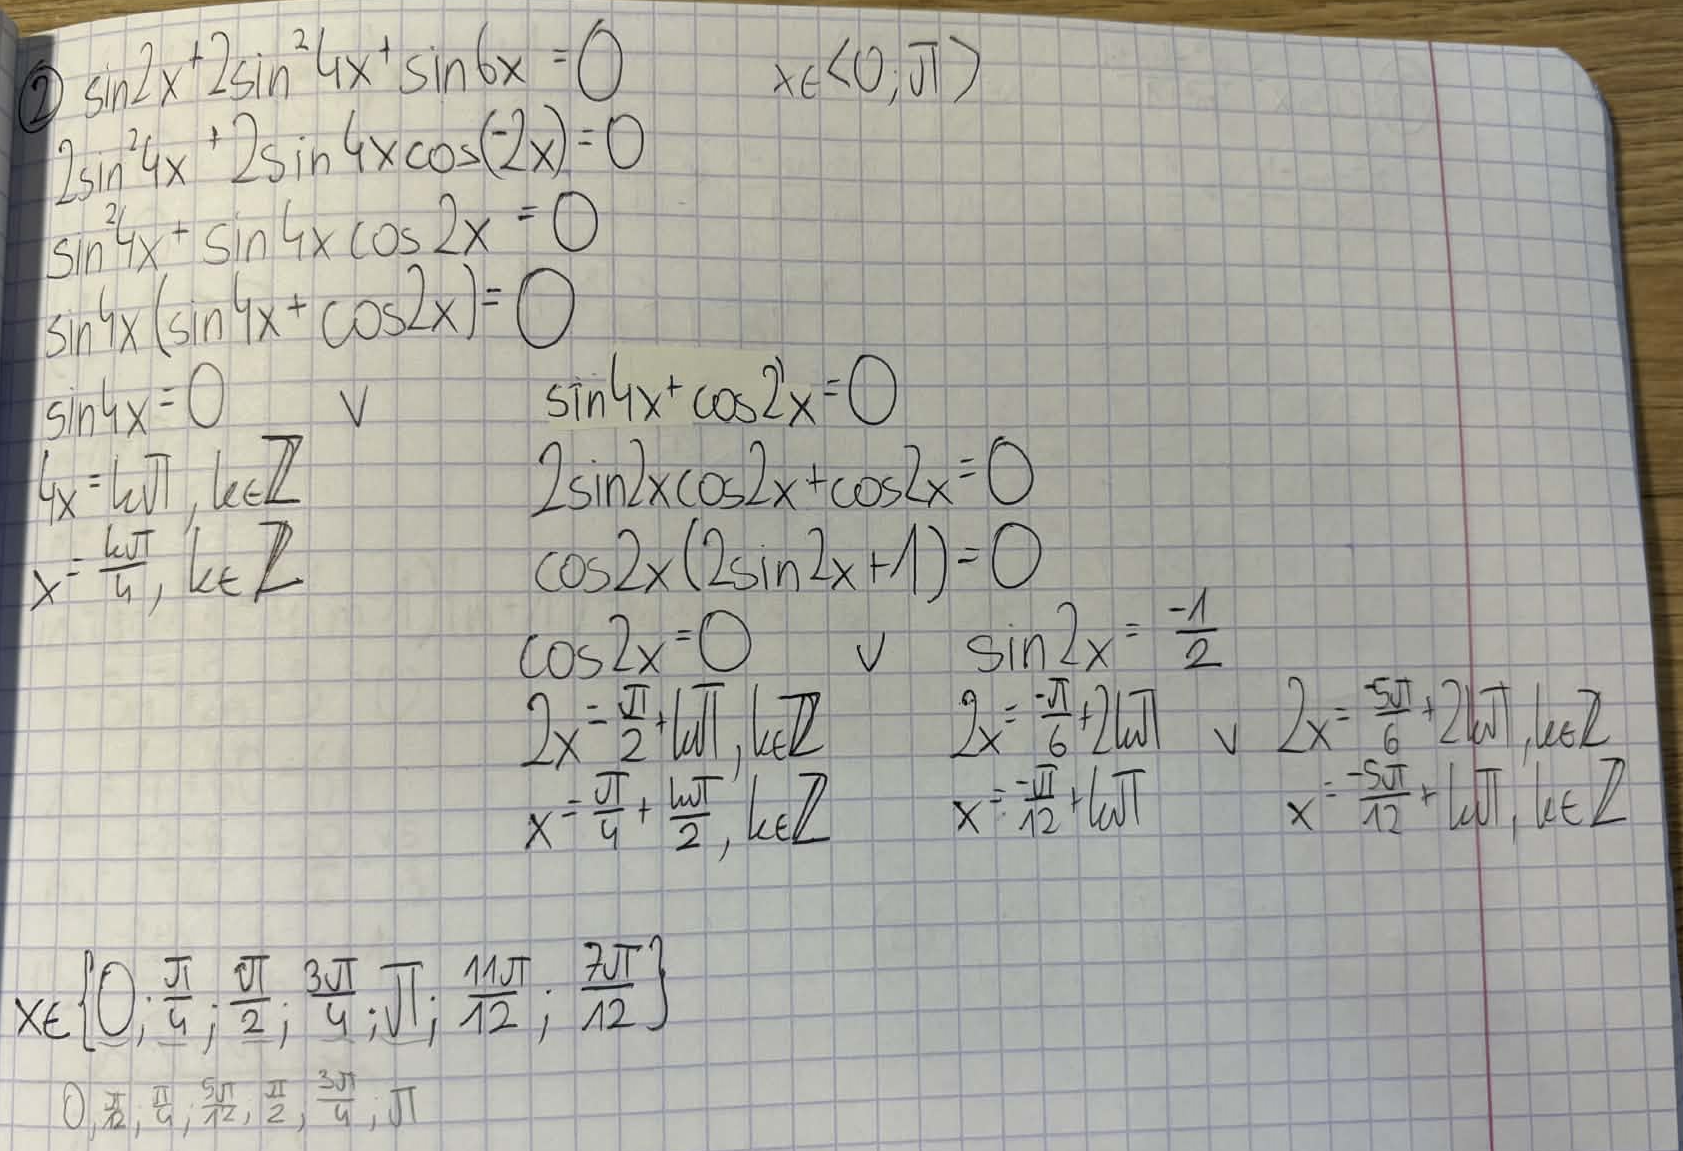 ② sin2x+2sin²4x+sin6x=0 x∈<0;π>
2sin²4x+2sin4xcos(-2x)=0
sin²4x+sin4xcos2x=0
sin4x(sin4x+cos2x)=0
sin4x=0 ∨ sin4x+cos2x=0
4x=kπ, k∈ℤ 2sin2xcos2x+cos2x=0
x=kπ/4, k∈ℤ cos2x(2sin2x+1)=0
cos2x=0 ∨ sin2x=-1/2
2x=π/2+kπ, k∈ℤ 2x=-π/6+2kπ ∨ 2x=-5π/6+2kπ, k∈ℤ
x=π/4+kπ/2, k∈ℤ x=-π/12+kπ x=-5π/12+kπ, k∈ℤ
x∈{0; π/4; π/2; 3π/4; π; 11π/12; 7π/12}
0, π/12; π/4; 5π/12, π/2, 3π/4, π